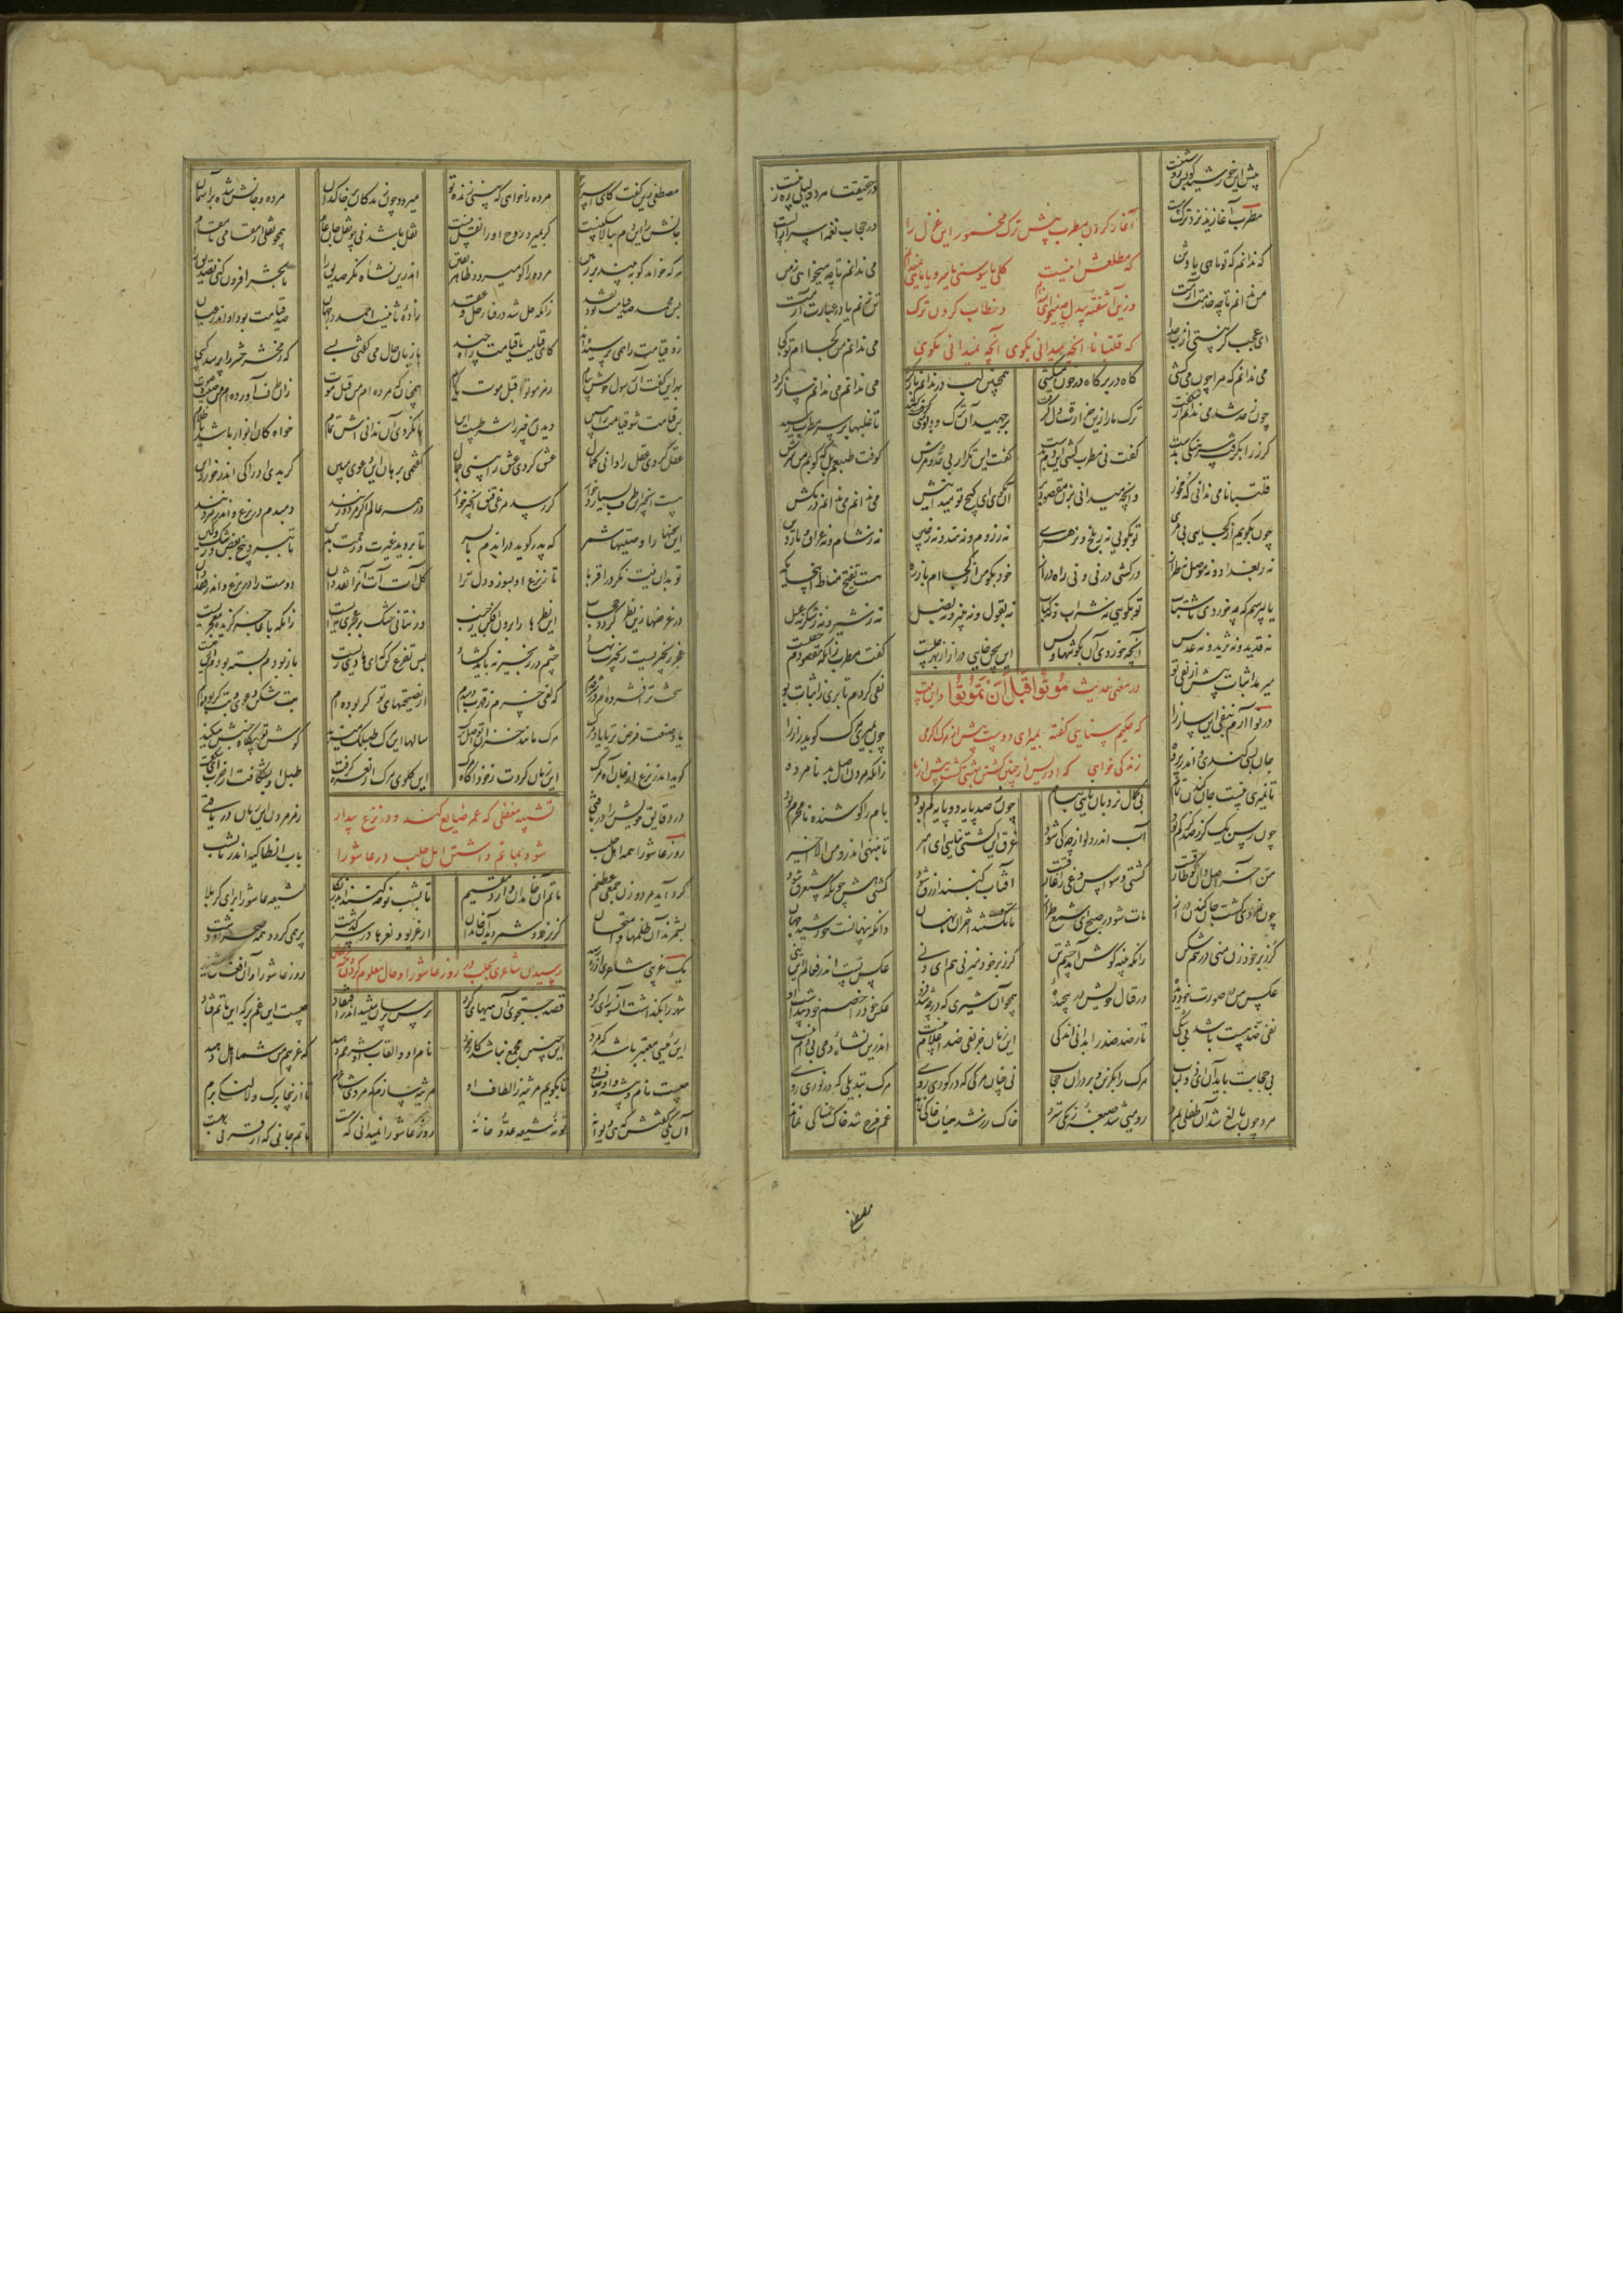 پیش این خورشید کو بس روشنیست در حقیقت هر دلیلی ره زنیست
مطرب آغازید نزد ترک مست در حجاب نغمه اسرار الست
آغاز کردن مطرب پیش ترک مخمور این غزل را
که ندانم که تو ماهی یا وثن می ندانم تا چه میخواهی ز من
که مطلعش اینست گلی یا سوسنی یا سرو یا ماهی نمیدانم
من ندانم تا چه خدمت آرمت تن زنم یا در عبارت آرمت
وزین آشفته بیدل چه میخواهی نمیدانم و خطاب کردن ترک
ای عجب که نیستی از من جدا می ندانم من کجاام تو کجا
که قلتبانا آنچه میدانی بگوی آنچه نمیدانی مگوی
می ندانم که مرا چون می کشی گاه در بر گاه در خون میکشی همچنین لب در ندانم باز کرد می ندانم می ندانم ساز کرد
چون ز حد شد می ندانم از شگفت ترک ما را زین حراره دل گرفت برجهید آن ترک و دبوسی کشید تا علیها بر سر مطرب رسید
گرز را بگرفت سرهنگی بدست گفت نی مطرب کشی این دم بدست گفت این تکرار بی حد و مرش کوفت طبعم را بکوبم من سرش
قلتبانا می ندانی گه مخور وانچه میدانی بزن مقصود بر آن بگو ای گیج که میدانیش می ندانم می ندانم در مکش
چون بگویم از کجایی ای مری تو بگویی نه ز بلخ و نز هری نه ز روم و نه ز هند و نه ز چین نه ز شام و نه عراق و ماردین
نه ز بغداد و نه موصل نه طراز در کشی در نی و نی راه دراز خود بگو من از کجاام باز ره هست تنقیح مناط اینجا بله
یا بپرسم که چه خوردی ناشتاب تو بگویی نه شراب و نه کباب نه بقول و نه پنیر و نه بصل نه ز شیر و نه ز شکر نه عسل
نه قدید و نه ثرید و نه عدس آنچه خوردی آن بگو تنها و بس این سخن خایی دراز از بهر چیست گفت مطرب زانکه مقصودم خفیست
میرمد اثبات پیش از نفی تو نفی کردم تا بری ز اثبات بو
در معنی حدیث مُوتُوا قَبْلَ اَنْ تَمُوتُوا و این بیت
در نوا آرم بنفی این ساز را چون بمیری مرگ گوید راز را
که حکیم سنایی گفته بمیر ای دوست پیش از مرگ اگر می
جان بسی کندی و اندر پرده زانکه مردن اصل بد ناورده
زندگی خواهی که ادریس از چنین مردن بهشتی گشت پیش از ما
تا نمیری نیست جان کندن تمام بی کمال نردبان نایی ببام چون ز صد پایه دو پایه کم بود بام را کوشنده نامحرم بود
چون رسن یک گز ز صد گز کم بود آب اندر دلو از چه کی شود غرق این کشتی نیابی ای امیر تا بننهی اندرو من الاخیر
من آخر اصل دان کو طارقست کشتی وسواس و غی را غارقست آفتاب گنبد ازرق شود کشتی هش چونکه مستغرق شود
چون نمردی گشت جان کندن دراز مات شو در صبح ای شمع طراز تا نگشتند اختران ما نهان دانکه پنهانست خورشید جهان
گرز بر خود زن منی در هم شکن زانکه پنبه گوش آمد چشم تن گرز بر خود میزنی هم ای دنی عکس تست اندر فعالم این منی
عکس من در صورت خود دیده در قتال خویش در پیچیده همچو آن شیری که در چه شد فرو عکس خود را خصم خود پنداشت او
نفی ضد هست باشد بی شکی تا ز ضد ضد را بدانی اندکی این زمان جز نفی ضد اعلام نیست اندرین نشأه دمی بی دام نیست
بی حجابت باید آن ای ذو لباب مرگ را بگزین و بر در آن حجاب نی چنان مرگی که در گوری روی مرگ تبدیلی که در نوری روی
مرد چون بالغ شد آن طفلی بمرد رومیی شد صبغه زنگی سترد خاک زر شد هیأت خاکی نماند غم فرح شد خار غمناکی نماند
مصطفی
مصطفی زین گفت کای اسرار جو مرده را خواهی که بینی زنده تو میرود چون زندگان بر خاکدان مرده و جانش شده بر آسمان
جانش را این دم ببالا مسکنیست گر بمیرد روح او را نقل نیست
نقل باشد نی چو نقل جان عام همچو نقلی از مقامی تا مقام
هر که خواهد کو ببیند بر زمین مرده را کو میرود ظاهر یقین
اندرین نشأه نگر صدیق را تا بحشر افزون کنی تصدیق را
پس محمد صد قیامت بود نقد زانکه حل شد در فنا حل و عقد زاده ثانیست احمد در جهان صد قیامت بود او اندر عیان
زو قیامت را همی پرسیده اند کای قیامت تا قیامت راه چند با زبان حال می گفتی بسی که ز محشر حشر را پرسد کسی
بهر این گفت آن رسول خوش پیام رمز موتوا قبل موت یا کرام همچنان که مرده ام من قبل موت زان طرف آورده ام من صیت و صوت
پس قیامت شو قیامت را ببین دیدن هر چیز را شرطست این تا نگردی آن ندانی اش تمام خواه کان انوار باشد یا ظلام
عقل گردی عقل را دانی کمال عشق گردی عشق را بینی جمال گفتمی برهان این دعوی مبین گر بدی ادراک اندر خورد این
هست انجیر این طرف بسیار خوار گر رسد مرغی قنق انجیر خوار در همه عالم اگر مرد و زنند دمبدم در نزع و اندر مردنند
این سخنها را وصیتها شمر که پدر گوید در آن دم با پسر تا بروید عبرت و رحمت بدین تا ببرد بیخ بغض و رشک و کین
تو بدان نیت نگر در اقربا تا ز نزع او بسوزد دل ترا کل آت آت آنرا نقد دان دوست را در نزع و اندر فقد دان
در غرضها زین نظر گردد حجاب این نظرها را برون افکن ز جیب ور نتانی خشک بر عجزی مایست زانکه با عاجز گزیده معجزیست
عجز زنجیریست زنجیرت نهاد چشم در زنجیر نه باید گشاد پس تضرع کن که ای هادی زیست باز بودم بسته بودم این ز چیست
سخت تر افشرده ام در شر قدم که لفی خسرم ز قهرت دمبدم از نصیحتهای تو کر بوده ام بت شکن دعوی و بتگر بوده ام
یاد صنعت فرض تر یا یاد مرگ مرگ مانند خزان تو اصل برگ سالها این مرگ طبلک میزند گوش تو بیگاه جنبش میکند
گوید اندر نزع از جان آه مرگ این زمان کردت ز خود آگاه مرگ این گلوی مرگ از نعره گرفت طبل او بشکافت از ضرب ای شگفت
در دقایق خویش را در بافتی رمز مردن این زمان در یافتی
تشبیه مغفلی که عمر ضایع کند و در نزع بیدار
روز عاشورا همه اهل حلب باب انطاکیه اندر تا بشب
شود بماتم داشتن اهل حلب در عاشورا
گرد آید مرد و زن جمعی عظیم ماتم آن خاندان دارد مقیم تا بشب نوحه کنند اندر بکا شیعه عاشورا برای کربلا
بشمرند آن ظلمها و امتحان کز یزید و شمر دید آن خاندان از غریو و نعرها در سرگذشت پر همی گردد همه صحرا و دشت
یک غریبی شاعری از ره رسید روز عاشورا و آن افغان شنید
رسیدن شاعری بحلب در روز عاشورا و حال معلوم کردن
شهر را بگذاشت آنسو رای کرد قصد جست و جوی آن هیهای کرد پرس پرسان میشد اندر افتقاد چیست این غم بر که این ماتم فتاد
این رئیسی معتبر باشد که مرد این چنین مجمع نباشد کار خرد نام او و القاب او شرحم دهید که غریبم من شما اهل دهید
چیست نام و پیشه و اوصاف او تا بگویم مرثیه ز الطاف او مرثیه سازم که مرد شاعرم تا ازینجا برگ و لالنگی برم
آن یکی گفتش که هی دیوانه تو نه شیعه عدو خانه روز عاشورا نمیدانی که هست ماتم جانی که از قرنی بهست